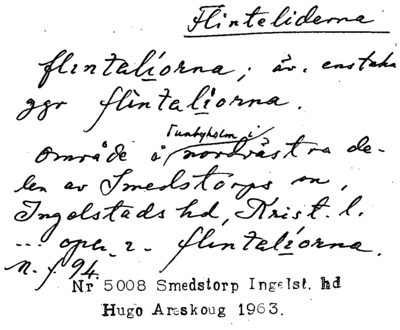 Flinteliderna
flintalíorna; äv. enstaka
ggr flintalíorna.
Tunbyholm i
område å nordvästra de-
len av Smedstorps sn,
Ingelstads hd, Krist. l.
... oper. 2. flintalíorna.
N. f. 94.
Nr 5008 Smedstorp Ingelst. hd
Hugo Areskoug 1963.